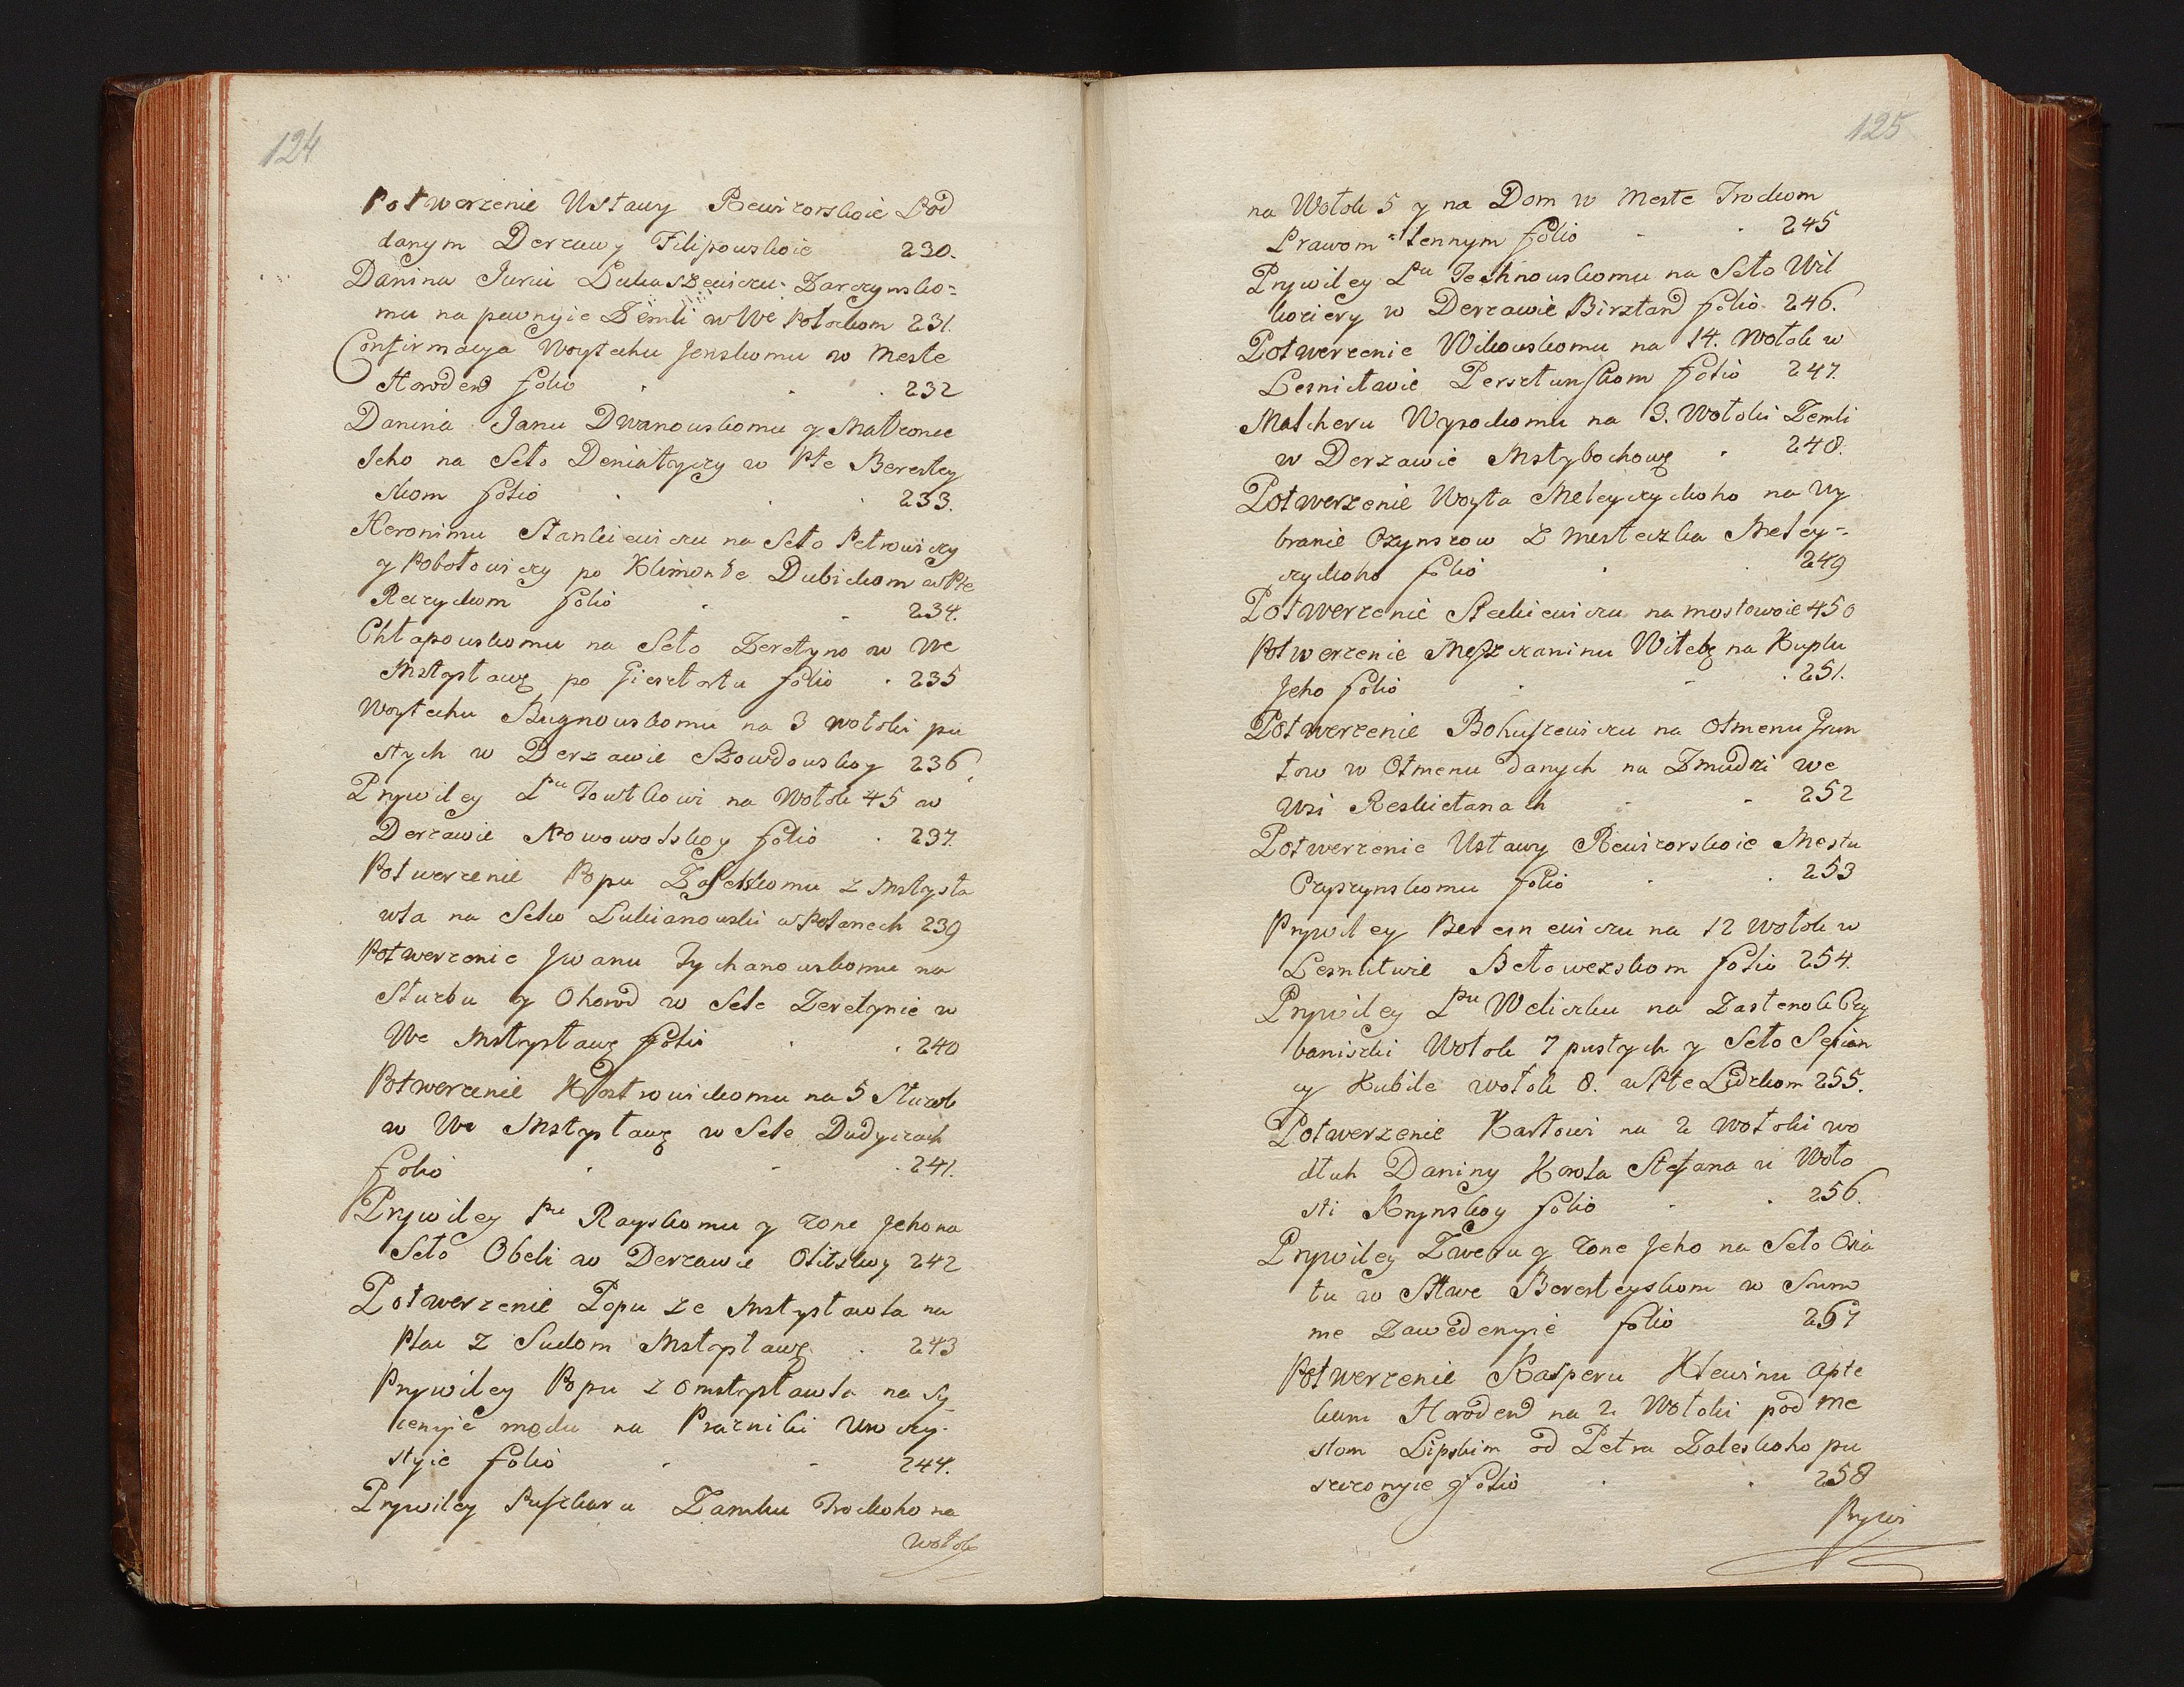 124
Potwerzenie Ustawy Rewizorskoie Pod
danym Derzawy Filipowskoie 230.
Danina Juriu Łukaszewiczu Zarzynsko=
mu na pewnyie Zemli w We Połockom 231.
Confirmacya Woytechu Jenskomu w Meste
Horoden folio . . . 232
Danina Janu Dwanowskomu y Małzonce
Jeho na Seło Deniatyczy w Pte Berestey
skom folio . . . 233.
Heronimu Stankiewiczu na Seło Petrowiczy
y Robotowiczy po Klimonte Dubickom w Pte
Reczyckom folio . . 234.
Chłapowskomu na Seło Zeretyno w We
Mstysławs po Gieżtortu folio . 235
Woytechu Bugnowskomu na 3 wołoki pu
stych w Derzawie Szowdowskoy 236.
Prywiley Pu Towtkowi na Wołok 45 w
Derzawie Nowowolskoy folio . 237.
Potwerzenie Popu Zaleskomu z Mstysła
wla na Selco Lukianowski w Połanech 239
Potwerzenie Jwanu Tychanowskomu na
Służbu y Ohorod w Sele Zeretynie w
We Mstysławs folio . . 240
Potwerzenie Kostrowickomu na 5 Służb
w We Mstysławs w Sele Dudyczach
folio . . . 241.
Prywiley Pu Rayskomu y zone Jeho na
Seło Obeli w Derzawie Olitskoy 242
Potwerzenie Popu ze Mstysławla na
Plac z Sudom Mstysławs . 243
Prywiley Popu z Omstysławla na Sy
cenyie medu na Prazniki Uroczy-
styie folio . . 244.
Prywiley Puszkaru Zamku Trockoho na
wołok
125
na Wołok 5 y na Dom w Meste Trockom
Prawom Lennym folio . . 245
Prywiley Pu Jechnowskomu na Seło Wil
koziery w Derzawie Birsztan folio. 246.
Potwerzenie Wilkowskomu na 14. Wołok w
Lesnictwie Persztunskom folio 247.
Malcheru Wysockomu na 3. Wołoki Zemli
w Derzawie Mstybohows . 248.
Potwerzenie Woyta Meleyczyckoho na Wy
branie Czynszow z Mesteczka Meley-
czyckoho folio . . 249
Potwerzenie Steckiewiczu na mostowoie 450
Potwerzenie Meszczaninu Witebs na Kuplu
Jeho folio . . . 251.
Potwerzenie Bohuszewiczu na Otmenu Grun
tow w Otmenu danych na Zmudzi we
Wsi Reskietanach . . 252
Potwerzenie Ustawy Rewizorskoie Mestu
Czyszynskomu folio . . 253
Prywiley Beresnewiczu na 12 Wołok w
Lesnictwie Bełowezskom folio 254.
Prywiley Pu Weliczku na Zastenok Czy
baniszki Wołok 7 pustych y Seło Sepian
cy Kubile wołok 8. w Pte Lidzkom 255.
Potwerzenie Karłowi na 2 wołoki wo
dłuh Daniny Krola Stefana u Woło
sti Krynskoy folio . . 256.
Prywiley Zweru y zone Jeho na Seło Osia
tu w Stwe Beresteyskom w Summe
me Zawedenyie folio 257
Potwerzenie Kasperu Klewinu Apte
karu Horoden na 2 Wołoki pod Me
stom Lipskim od Petra Zaleskoho pu
szczonyie folio . . 258
Prywi